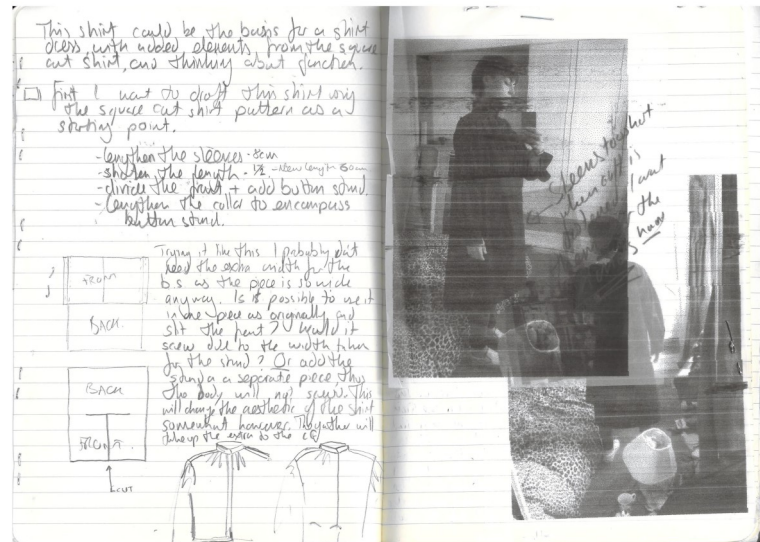 This shirt could be the basis for a shirt
dress, with added elements from the square
cut shirt, and thinking about function.
First I want to draft this shirt using
the square cut shirt pattern as a
starting point.
- lengthen the sleeves - 8cm
- shorten the length - 1/2 - New length 60cm
- divide the front + add button stand.
- lengthen the collar to encompass
button stand.
Trying it like this I probably don't
need the extra width for the
b.s. as the piece is so wide
anyway. Is it possible to use it
in one piece as originally and
slit the front? Would it
screw due to the width taken
for the stand? Or add the
stand as a separate piece thus
the body will not screw. This
will change the aesthetic of the shirt
somewhat however. The gather will
take up the extra to the
FRONT
BACK
BACK
FRONT
CUT
too short
when cuff is
I want
the